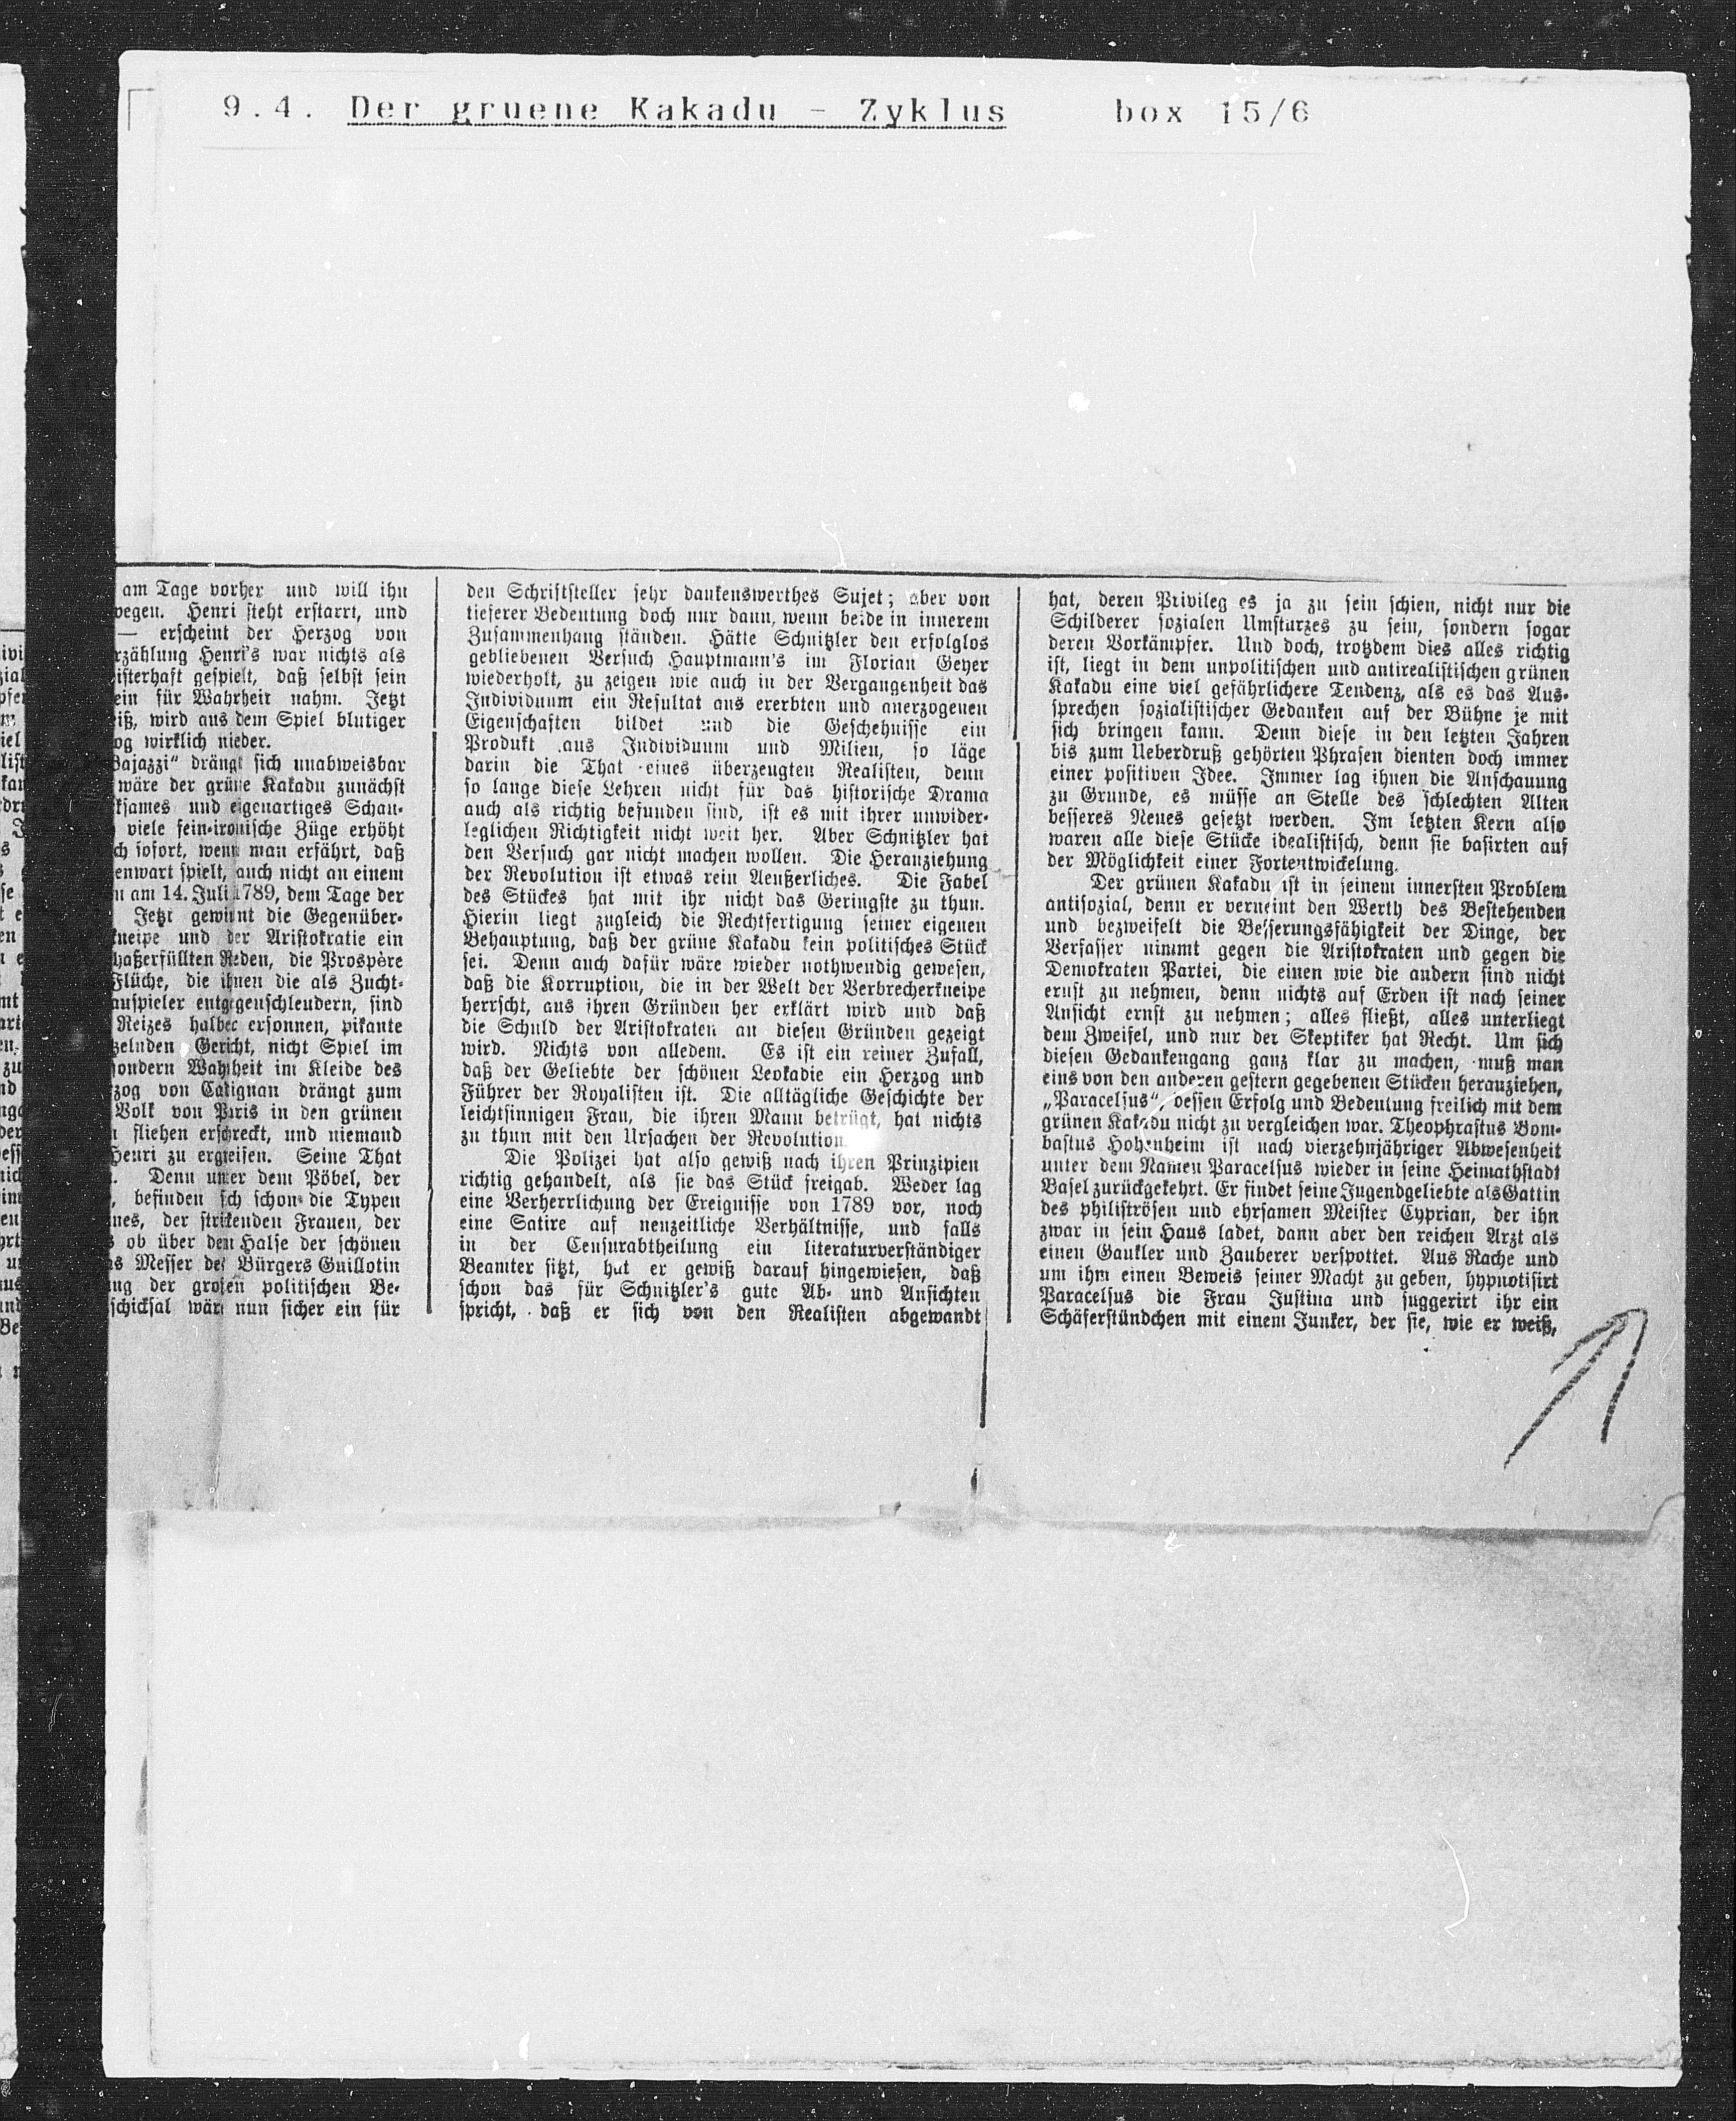 9.4. Der gruene Kakadu - Zyklus box 15/6
am Tage vorher und will ihn
Henri steht erstarrt, und
— erscheint der Herzog von
Henri's war nichts als
gespielt, daß selbst sein
für Wahrheit nahm. Jetzt
wird aus dem Spiel blutiger
wirklich nieder.
drängt sich unabweisbar
wäre der grüne Kakadu zunächst
und eigenartiges Schau-
viele fein-ironische Züge erhöht
sofort, wenn man erfährt, daß
spielt, auch nicht an einem
am 14. Juli 1789, dem Tage der
Jetzt gewinnt die Gegenüber-
und der Aristokratie ein
Reden, die Prospère
Flüche, die ihnen die als Zucht-
entgegenschleudern, sind
Reizes halber ersonnen, pikante
Gericht, nicht Spiel im
sondern Wahrheit im Kleide des
von Cadignan drängt zum
Volk von Paris in den grünen
fliehen erschreckt, und niemand
Henri zu ergreifen. Seine That
Denn unter dem Pöbel, der
befinden sich schon die Typen
der strikenden Frauen, der
ob über den Halse der schönen
Messer des Bürgers Guillotin
der großen politischen Be-
wäre nun sicher ein für
den Schriftsteller sehr dankenswerthes Sujet; aber von
tieferer Bedeutung doch nur dann, wenn beide in innerem
Zusammenhang ständen. Hätte Schnitzler den erfolglos
gebliebenen Versuch Hauptmann's im Florian Geyer
wiederholt, zu zeigen wie auch in der Vergangenheit das
Individuum ein Resultat aus ererbten und anerzogenen
Eigenschaften bildet und die Geschehnisse ein
Produkt aus Individuum und Milieu, so läge
darin die That eines überzeugten Realisten, denn
so lange diese Lehren nicht für das historische Drama
auch als richtig befunden sind, ist es mit ihrer unwider-
leglichen Richtigkeit nicht weit her. Aber Schnitzler hat
den Versuch gar nicht machen wollen. Die Heranziehung
der Revolution ist etwas rein Aeußerliches. Die Fabel
des Stückes hat mit ihr nicht das Geringste zu thun.
Hierin liegt zugleich die Rechtfertigung seiner eigenen
Behauptung, daß der grüne Kakadu kein politisches Stück
sei. Denn auch dafür wäre wieder nothwendig gewesen,
daß die Korruption, die in der Welt der Verbrecherkneipe
herrscht, aus ihren Gründen her erklärt wird und daß
die Schuld der Aristokraten an diesen Gründen gezeigt
wird. Nichts von alledem. Es ist ein reiner Zufall,
daß der Geliebte der schönen Leokadie ein Herzog und
Führer der Royalisten ist. Die alltägliche Geschichte der
leichtsinnigen Frau, die ihren Mann betrügt, hat nichts
zu thun mit den Ursachen der Revolution
Die Polizei hat also gewiß nach ihren Prinzipien
richtig gehandelt, als sie das Stück freigab. Weder lag
eine Verherrlichung der Ereignisse von 1789 vor, noch
eine Satire auf neuzeitliche Verhältnisse, und falls
in der Censurabtheilung ein literaturverständiger
Beamter sitzt, hat er gewiß darauf hingewiesen, daß
schon das für Schnitzler's gute Ab- und Ansichten
spricht, daß er sich von den Realisten abgewandt
hat, deren Privileg es ja zu sein schien, nicht nur die
Schilderer sozialen Umsturzes zu sein, sondern sogar
deren Vorkämpfer. Und doch, trotzdem dies alles richtig
ist, liegt in dem unpolitischen und antirealistischen grünen
Kakadu eine viel gefährlichere Tendenz, als es das Aus-
sprechen sozialistischer Gedanken auf der Bühne je mit
sich bringen kann. Denn diese in den letzten Jahren
bis zum Ueberdruß gehörten Phrasen dienten doch immer
einer positiven Idee. Immer lag ihnen die Anschauung
zu Grunde, es müsse an Stelle des schlechten Alten
besseres Neues gesetzt werden. Im letzten Kern also
waren alle diese Stücke idealistisch, denn sie basirten auf
der Möglichkeit einer Fortentwickelung.
Der grünen Kakadu ist in seinem innersten Problem
antisozial, denn er verneint den Werth des Bestehenden
und bezweifelt die Besserungsfähigkeit der Dinge, der
Verfasser nimmt gegen die Aristokraten und gegen die
Demokraten Partei, die einen wie die andern sind nicht
ernst zu nehmen, denn nichts auf Erden ist nach seiner
Ansicht ernst zu nehmen; alles fließt, alles unterliegt
dem Zweifel, und nur der Skeptiker hat Recht. Um sich
diesen Gedankengang ganz klar zu machen, muß man
eins von den anderen gestern gegebenen Stücken heranziehen,
„Paracelsus", dessen Erfolg und Bedeutung freilich mit dem
grünen Kakadu nicht zu vergleichen war. Theophrastus Bom-
bastus Hohenheim ist nach vierzehnjähriger Abwesenheit
unter dem Namen Paracelsus wieder in seine Heimathstadt
Basel zurückgekehrt. Er findet seine Jugendgeliebte als Gattin
des philiströsen und ehrsamen Meister Cyprian, der ihn
zwar in sein Haus ladet, dann aber den reichen Arzt als
einen Gaukler und Zauberer verspottet. Aus Rache und
um ihm einen Beweis seiner Macht zu geben, hypnotisirt
Paracelsus die Frau Justina und suggerirt ihr ein
Schäferstündchen mit einem Junker, der sie, wie er weiß,